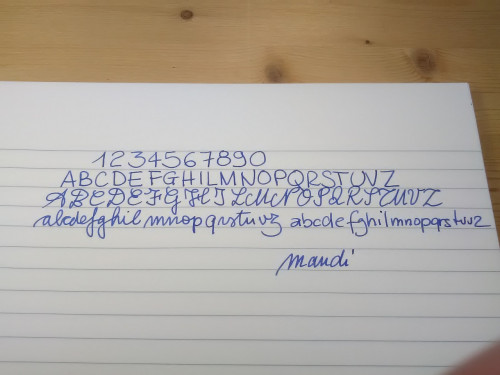 1234567890
ABCDEFGHILMNOPQRSTUVZ
ABCDEFGHILMNOPQRSTUVZ
abcdefghilmnopqrstuvz abcdefghilmnopqrstuvz
mandi